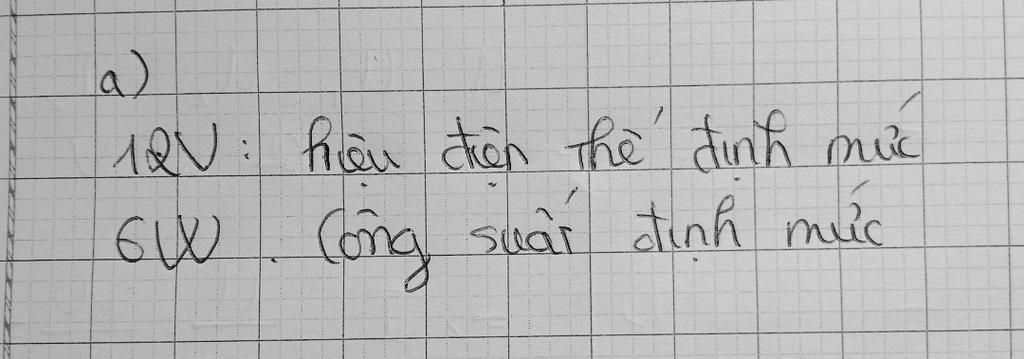 a)
12V: hiệu điện thế định mức
6W. Công suất định mức